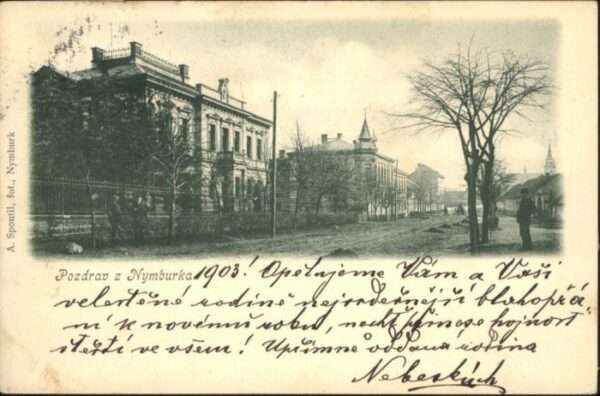 A. Spoutil, fot., Nymburk
Pozdrav z Nymburka 1903! Opětujeme Vám a Vaší
velectěné rodině nejsrdečnější blahopřá
ní k novému roku, nechť přinese hojnost
štěstí ve všem! Upřímně oddaná rodina
Nebeských